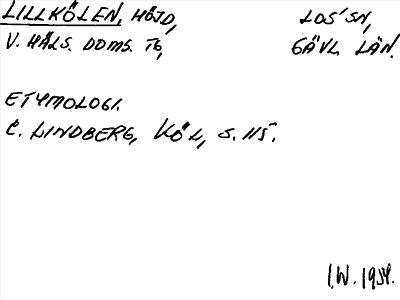 LILLKÖLEN, HÖJD, LOS' SN,
V. HÄLS. DOMS. TG, GÄVL. LÄN.
ETYMOLOGI.
C. LINDBERG, KÖL, S. 115.
I.W. 1954.